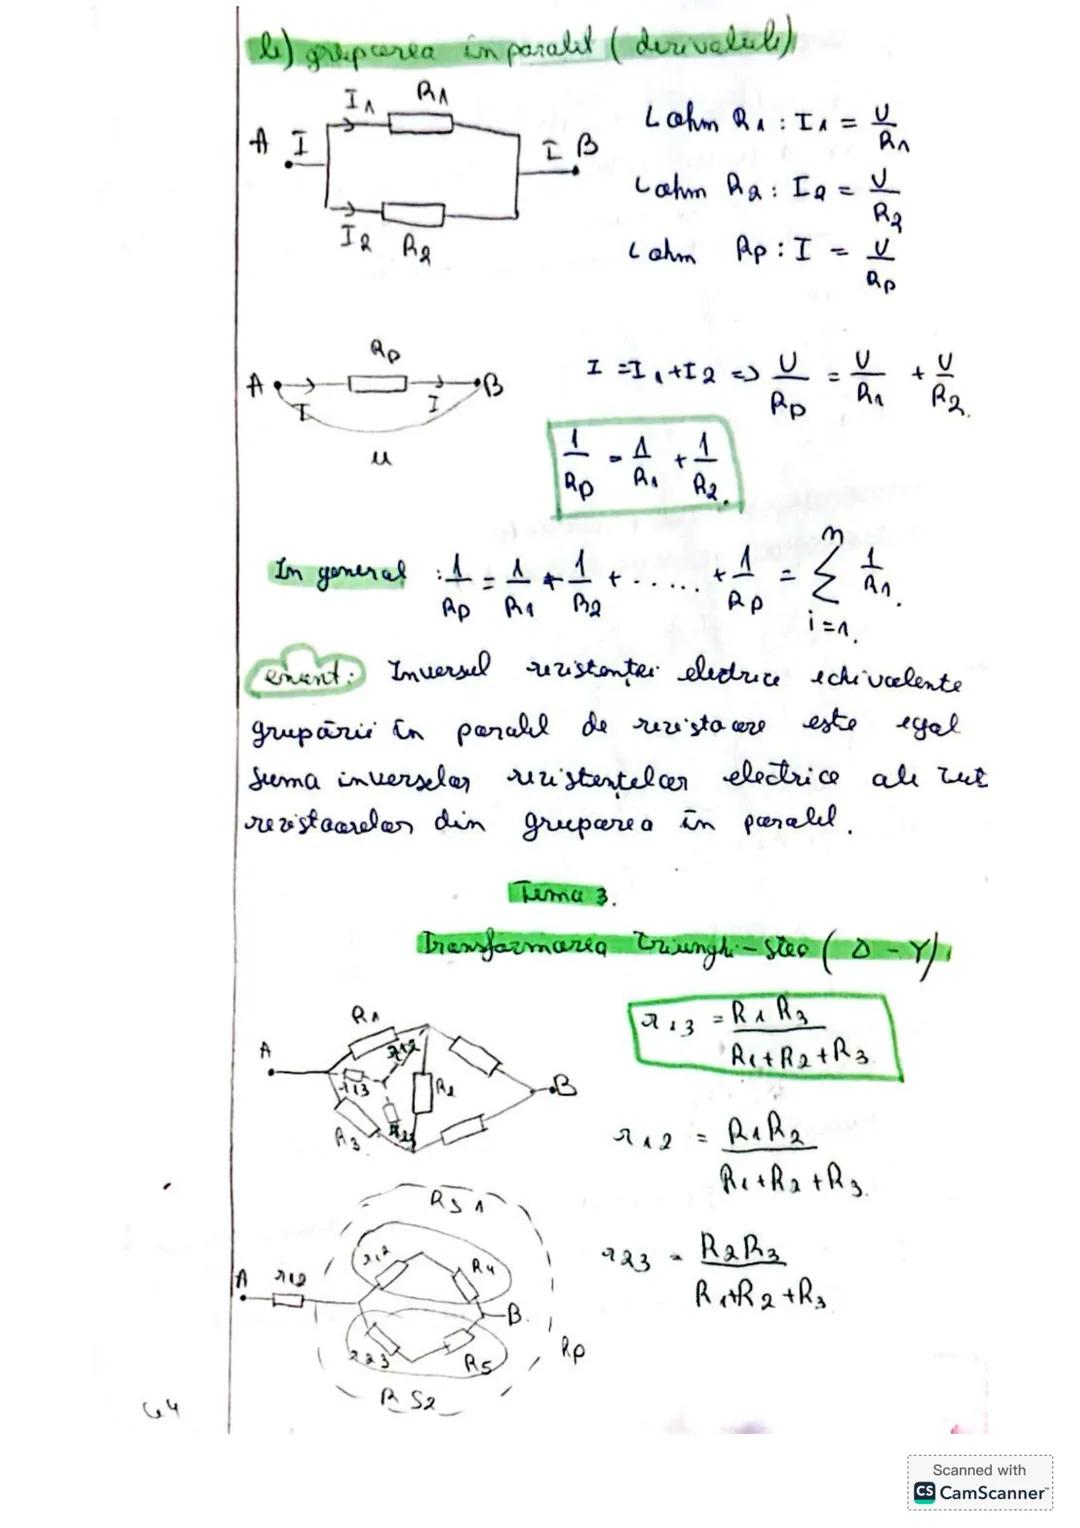 b) gruparea în paralel (derivatele)
I1 R1
A I
I B
I2 R2
L ohm R1 : I1 = U/R1
L ohm R2 : I2 = U/R2
L ohm Rp : I = U/Rp
Rp
A B
I I
u
I = I1 + I2 => U/Rp = U/R1 + U/R2.
1/Rp = 1/R1 + 1/R2.
In general : 1/Rp = 1/R1 + 1/R2 + ...... + 1/Rp = n∑i=1. 1/R1.
enunt: Inversul rezistenței electrice echivalente
grupării în paralel de rezistoare este egal
suma inverselor rezistențelor electrice ale
rezistoarelor din gruparea în paralel.
Tema 3.
Transformarea triunghi-stea (Δ - Y)
R1
A r12
r13 R2 B
R3 r23
r13 = R1 R3 / R1+R2+R3.
r12 = R1R2 / R1+R2+R3.
r23 = R2R3 / R1+R2+R3
RS1
r12 R4
A r12
B.
r23 R5 Rp
RS2
64
Scanned with
CS CamScanner